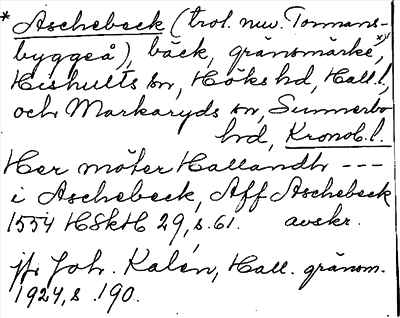 * Aschebeck (trol. nuv. Tormans-
byggeå), bäck, gränsmärke, x)
Hishults sn, Höks hd, Hall. l.,
och Markaryds sn, Sunnerbo
hd, Kronob. l.
Her möter Hallandh ---
i Aschebeck, Aff Aschebeck
1554 HSkH 29, s. 61. avskr.
jfr Joh. Kalén, Hall. gränsm.
1924, s. 190.